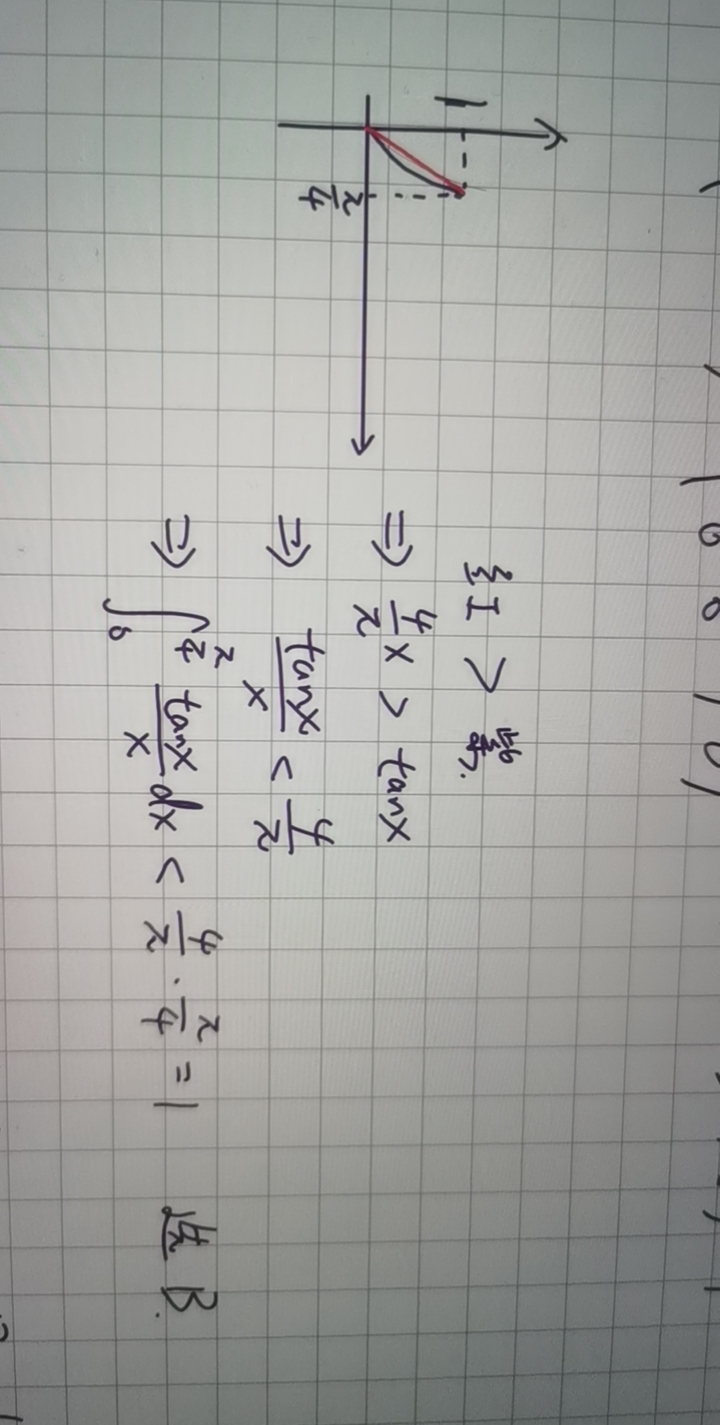 1
π/4
红 > 黑.
⇒ 4/π x > tanx
⇒ tanx/x < 4/π
⇒ ∫₀^(π/4) tanx/x dx < 4/π · π/4 = 1 选 B.